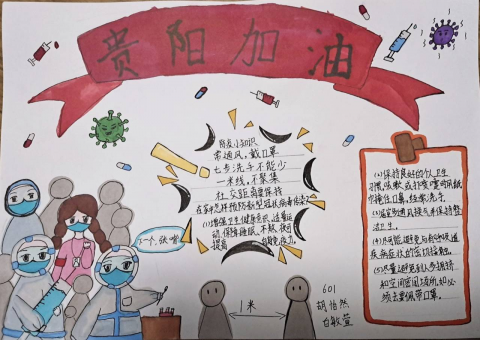 贵阳加油
防疫小知识
常通风,戴口罩
七步洗手不能少
一米线,不聚集
社交距离要保持
在家怎样预防新型冠状病毒传染?
(1)增强卫生健康意识,适量运
动,保障睡眠,不熬夜可
提高自身免疫力。
下一个,张嘴
1米
601
胡怡然
白敏萱
(2)保持良好的个人卫生
习惯,咳嗽或打喷嚏时用纸
巾掩住口鼻,经常洗手
(3)居室勤通风换气并保持整
洁卫生。
(4)尽可能避免与有呼吸道
疾病症状的密切接触。
(5)尽量避免到人多拥挤
和空间密闭场所,如必
须去要佩带口罩。